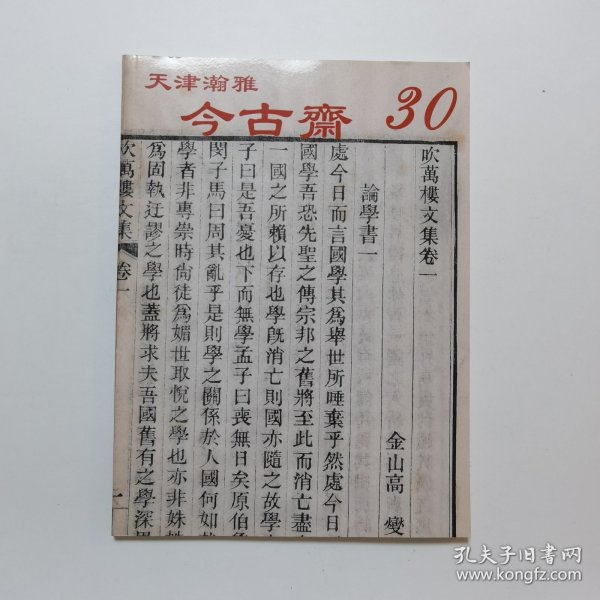 天津瀚雅
今古齋
30
吹萬樓文集卷一
金山高 燮
論學書一
處今日而言國學其為舉世所唾棄乎然處今日
國學吾恐先聖之傳宗邦之舊將至此而消亡盡
一國之所賴以存也學旣消亡則國亦隨之故學
子曰是吾憂也下而無學孟子曰喪無日矣原伯
閔子馬曰周其亂乎是則學之關係於人國何如
學者非專崇時尙徒為媚世取悅之學也亦非姝姝
為固執迂謬之學也蓋將求夫吾國舊有之學深
吹萬樓文集 卷一
一
孔夫子旧书网
www.kongfz.com